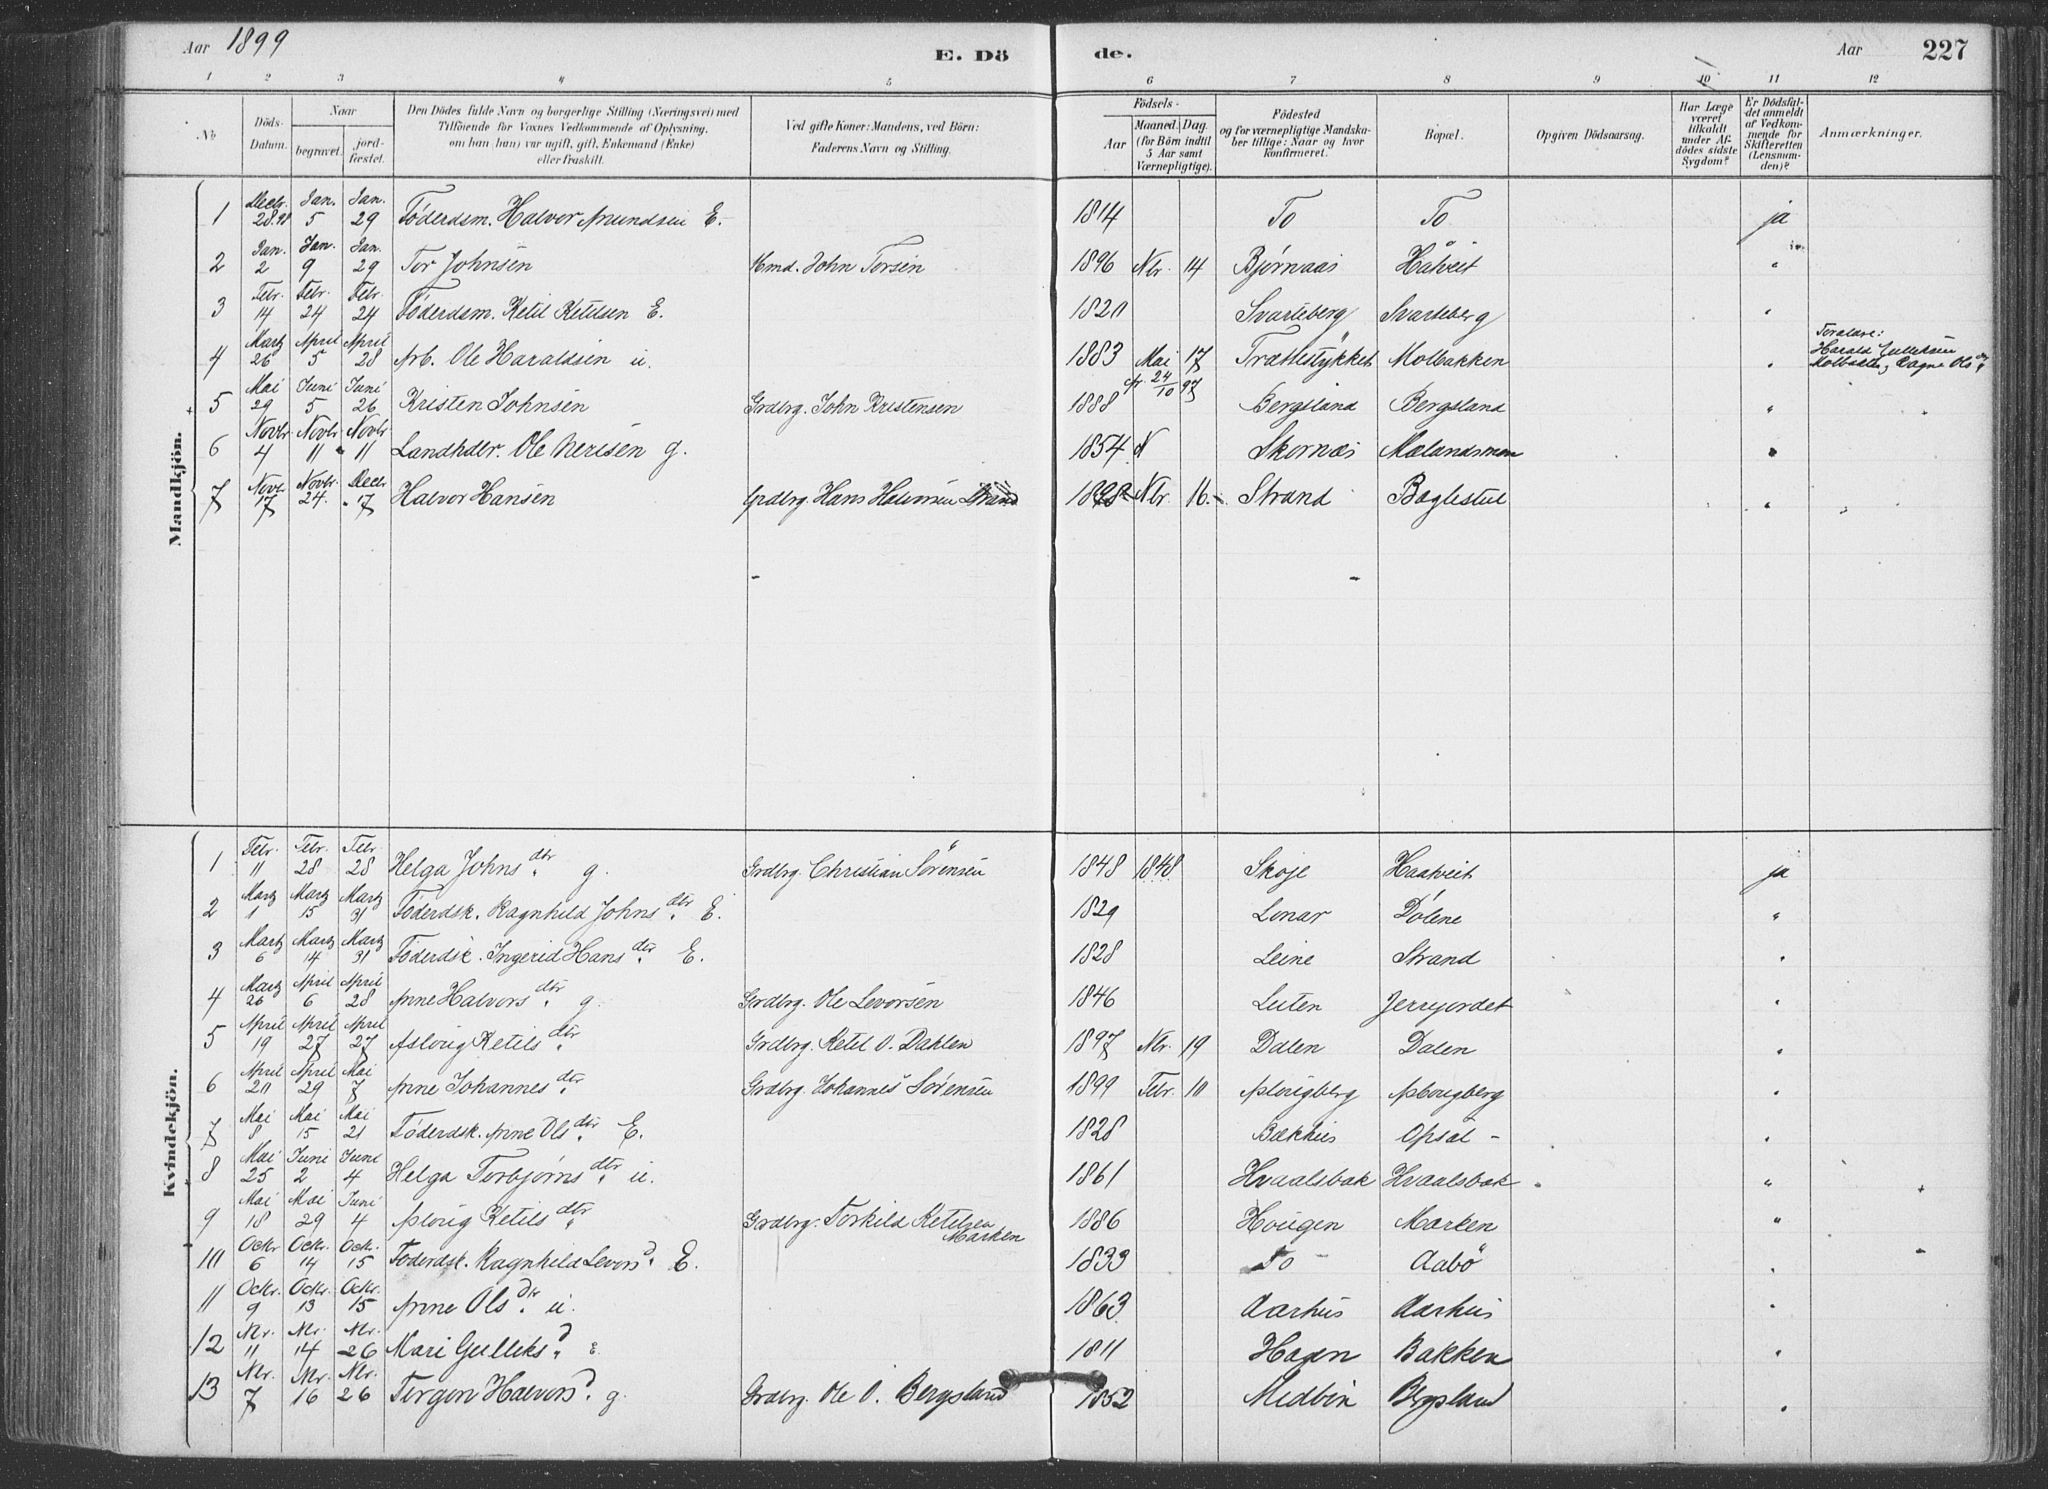 Aar 1899 E. Dö de. Aar 227
1 2 3 4 5 6 7 8 9 10 11 12
No
Döds-Datum.
Naar
begravet.
jord-fæstet.
Den Dödes fulde Navn og borgerlige Stilling (Næringsvei) med
Tilföiende for Voxnes Vedkommende af Oplysning,
om han (hun) var ugift, gift, Enkemand (Enke)
eller fraskilt.
Ved gifte Koner: Mandens, ved Börn:
Faderens Navn og Stilling.
Födsels-
Aar
Maaned. Dag.
(for Börn indtil
5 Aar samt
Værnepligtige).
Födested
og for værnepligtige Mandska-
ber tillige: Naar og hvor
konfirmeret.
Bopæl.
Opgiven Dödsaarsag.
Har Læge
været
tilkaldt
under Af-
dödes sidste
Sygdom?
Er Dödsfal-
det anmeldt
af Vedkom-
mende for
Skifteretten
(Lensman-
den)?
Anmærkninger.
Mandkjön.
1 Decbr. 28.98 Jan. 5 Jan. 29 Föderdsm. Halvor Amundsen E. 1814 To To ja
2 Jan. 2 Jan. 9 Jan. 29 Tor Johnsen Hmd. John Torsen 1896 Nbr. 14 Bjørnaas Håtveit "
3 Febr. 14 Febr. 24 Febr. 24 Föderdsm. Ketil Ketilsen E. 1820 Svarteberg Svarteberg "
4 Martz 26 April 5 April 28 Arb. Ole Haraldsen u. 1883 Mai 17 Trættestykket Molbakken "
Foreldre:
Harald
5 Mai 29 Juni 5 Juni 26 Kristen Johnsen Grdbrg. John Kristensen 1888 24/10 97 Bergsland Bergsland "
6 Novbr 4 Novbr 11 Novbr 11 Landhdlr. Ole Nerisen g. 1854 Skornæs Mælandsmoen "
7 Novbr 17 Novbr. 24. Decbr 17 Halvor Hansen Grdbrg. Hans Halvorsen Strand 1898 Nbr. 16 Strand Baglestul "
Kvindekjön.
1 Febr. 11 Febr. 28 Febr. 28 Helga Johns dtr g. Grdbrg. Christian Sørensen 1848 1848 Skoje Haatveit ja
2 Martz 1 Martz 15 Martz 31 Föderdsk. Ragnhild Johns dtr E. 1829 Lonar Dölene "
3 Martz 6 Martz 14 Martz 31 Föderdsk. Ingerid Hans dtr E. 1828 Leine Strand "
4 Martz 26 April 6 April 28 Anne Halvors dtr g. Grdbrg. Ole Levorsen 1846 Leiten Jerryordet "
5 April 19 April 27 April 27 Asloug Ketils dtr Grdbrg. Ketil O. Dahlen 1897 Nbr. 19 Dalen Dalen "
6 April 20 April 29 Mai 7 Anne Johannes dtr Grdbrg. Johannes Sørensen 1899 Febr. 10 Aslougberg Aslougberg "
7 Mai 8 Mai 15 Mai 21 Föderdsk. Anne Ols dtr E. 1828 Bækhus Opsal "
8 Mai 25 Juni 2 Juni 4 Helga Torbjørns dtr u. 1861 Hvaalsbak Hvaalsbak "
9 Mai 18 Mai 29 Juni 4 Asloug Ketils dtr Grdbrg. Torkild Ketilsen 1886 Hougen Marken "
Marken
10 Octr 6 Octr. 14 Oct. 15 Föderdsk. Ragnhild Levors d. E. 1833 To Aabö "
11 Octr. 9 Octr. 13 Octr. 15 Anne Ols dtr u. 1863 Aarhus Aarhus "
12 Nbr. 11 Nbr. 14 Nbr. 26 Mari Gulleks d. E. 1811 Hagen Bakken "
13 Nbr. 7 Nbr. 16 Nbr. 26 Torgon Halvors d. g. Grdbrg. Ole O. Bergsland 1852 Medbön Bergsland "